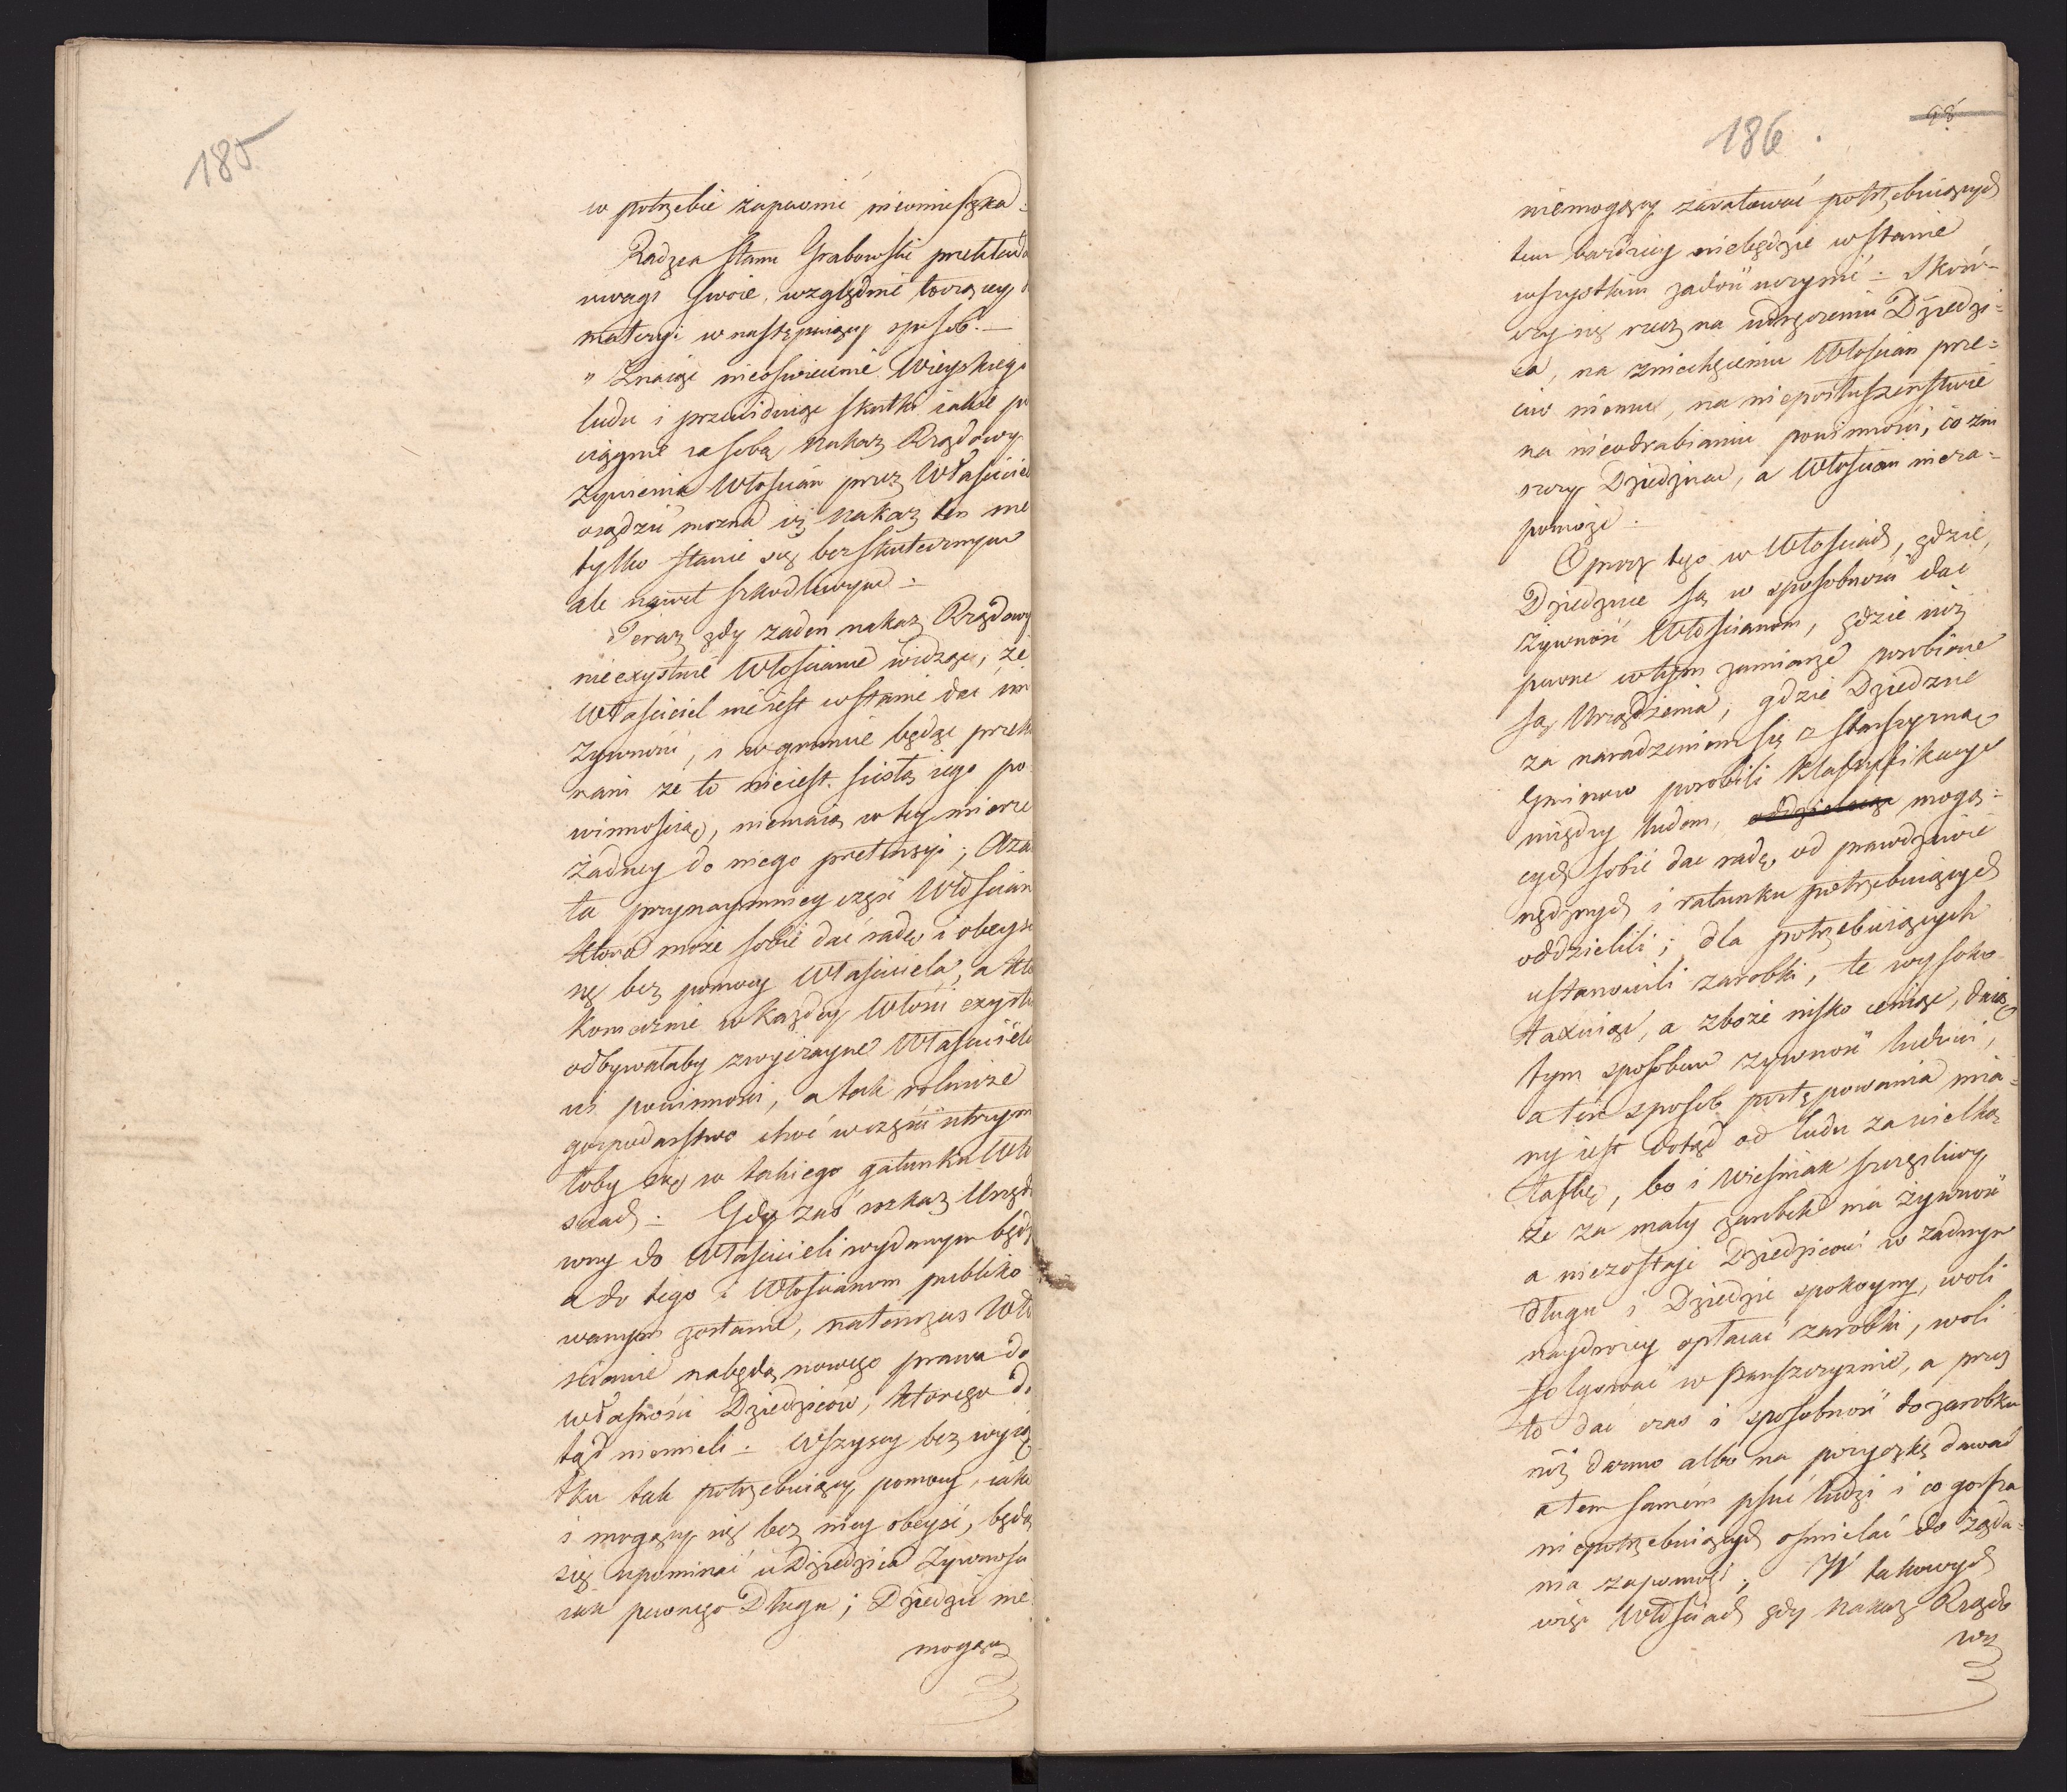 185
w potrzebie zapewnić niemieszka-
Radzca Stanu Grabowski przekłada
uwagi swoie, względnie toczącey
materyi w następuiący sposob. —
" Znaiąc nieoświecenie Wieyskiego
ludu i przewiduiąc skutki iakie po
ciągnie za sobą nakaz Rządowy
żywienia Włościan przez Właściciel
osądzić można iż nakaz ten nie
tylko stanie się bezskutecznym
ale nawet szkodliwym.
Teraz gdy żaden nakaz Rządowy
nieexystuie Włościanie widząc, że
Właściciel nie iest w stanie dać im
żywność, i w gruncie będąc przeko
nani że to nieiest ścisłą iego po
winnością, niemaią w tey mierze
żadney do niego pretensyi; Aza
ta przynaymniey część Włościan
która może sobie dać radę i obeyść
się bez pomocy Właściciela, a któ
koniecznie w każdey Włości exystu
odbywałaby zwyczayne Właściciele
wi powinności, a tak rolnicze
gospodarstwo choć w części utrzym
łoby się w takiego gatunku Wło
sciach. Gdy zaś nakaz Urzędo
wny do Właścicieli wydanym będz
a do tego i Włościanom publiko
wanym zostanie, natenczas Wło
scianie nabędą nowego prawa do
własności Dziedziców, którego do
tąd niemieli. Wszyscy bez wyią
tku tak potrzebuiący pomocy, iako
i mogący się bez niey obeyść, będą
się upominać u Dziedzica żywności
iak pewnego Długu; Dziedzic nie
mogący
98
186
niemogący zaratować potrzebuiących
tem bardziey niebędzie w stanie
wszystkim zadość uczynić. Skoń-
czy się rzecz na udręczeniu Dziedzi-
ca, na zniechęceniu Włościan prze-
ciw niemu, na nieposłuszeństwie
na nieodrabianiu powinności, co zni
szczy Dziedzica, a Włościan niera-
pomoże.
Oprócz tego w Włościach, gdzie
Dziedzice są w sposobności dać
żywność Włościanom, gdzie iuż
pewne w tym zamiarze porobione
są Urządzenia, gdzie Dziedzice
za naradzeniem się z starszyzną
Gminow porobili Klassyfikacye
między ludem, oddzielaiąc mogą-
cych sobie dać radę, od prawdziwie
nędznych i ratunku potrzebuiących
oddzielili; dla potrzebuiących
ustanowili zarobki, te wysoko
taxuiąc, a zboże nisko ceniąc, daią
tym sposobem żywność ludowi,
a ten sposob postępowania mia-
ny iest dotąd od ludu za wielką
łaskę, bo i Wieśniak szczęśliwy,
że za mały zarobek ma żywność
a niezostaie Dziedzicowi w żadnym
długu i Dziedzic spokoyny, woli
naydrożey opłacać zarobki, woli
folgować w Panszczyznie, a przez
to dać czas i sposobność do zarobku
niż darmo albo na pożyczkę dawać
a tem samém psuć ludzi i co gorsza
niepotrzebuiących ośmielać do żąda-
nia zapomogi. W takowych
więc Włościach gdy nakaz Rządo
wy